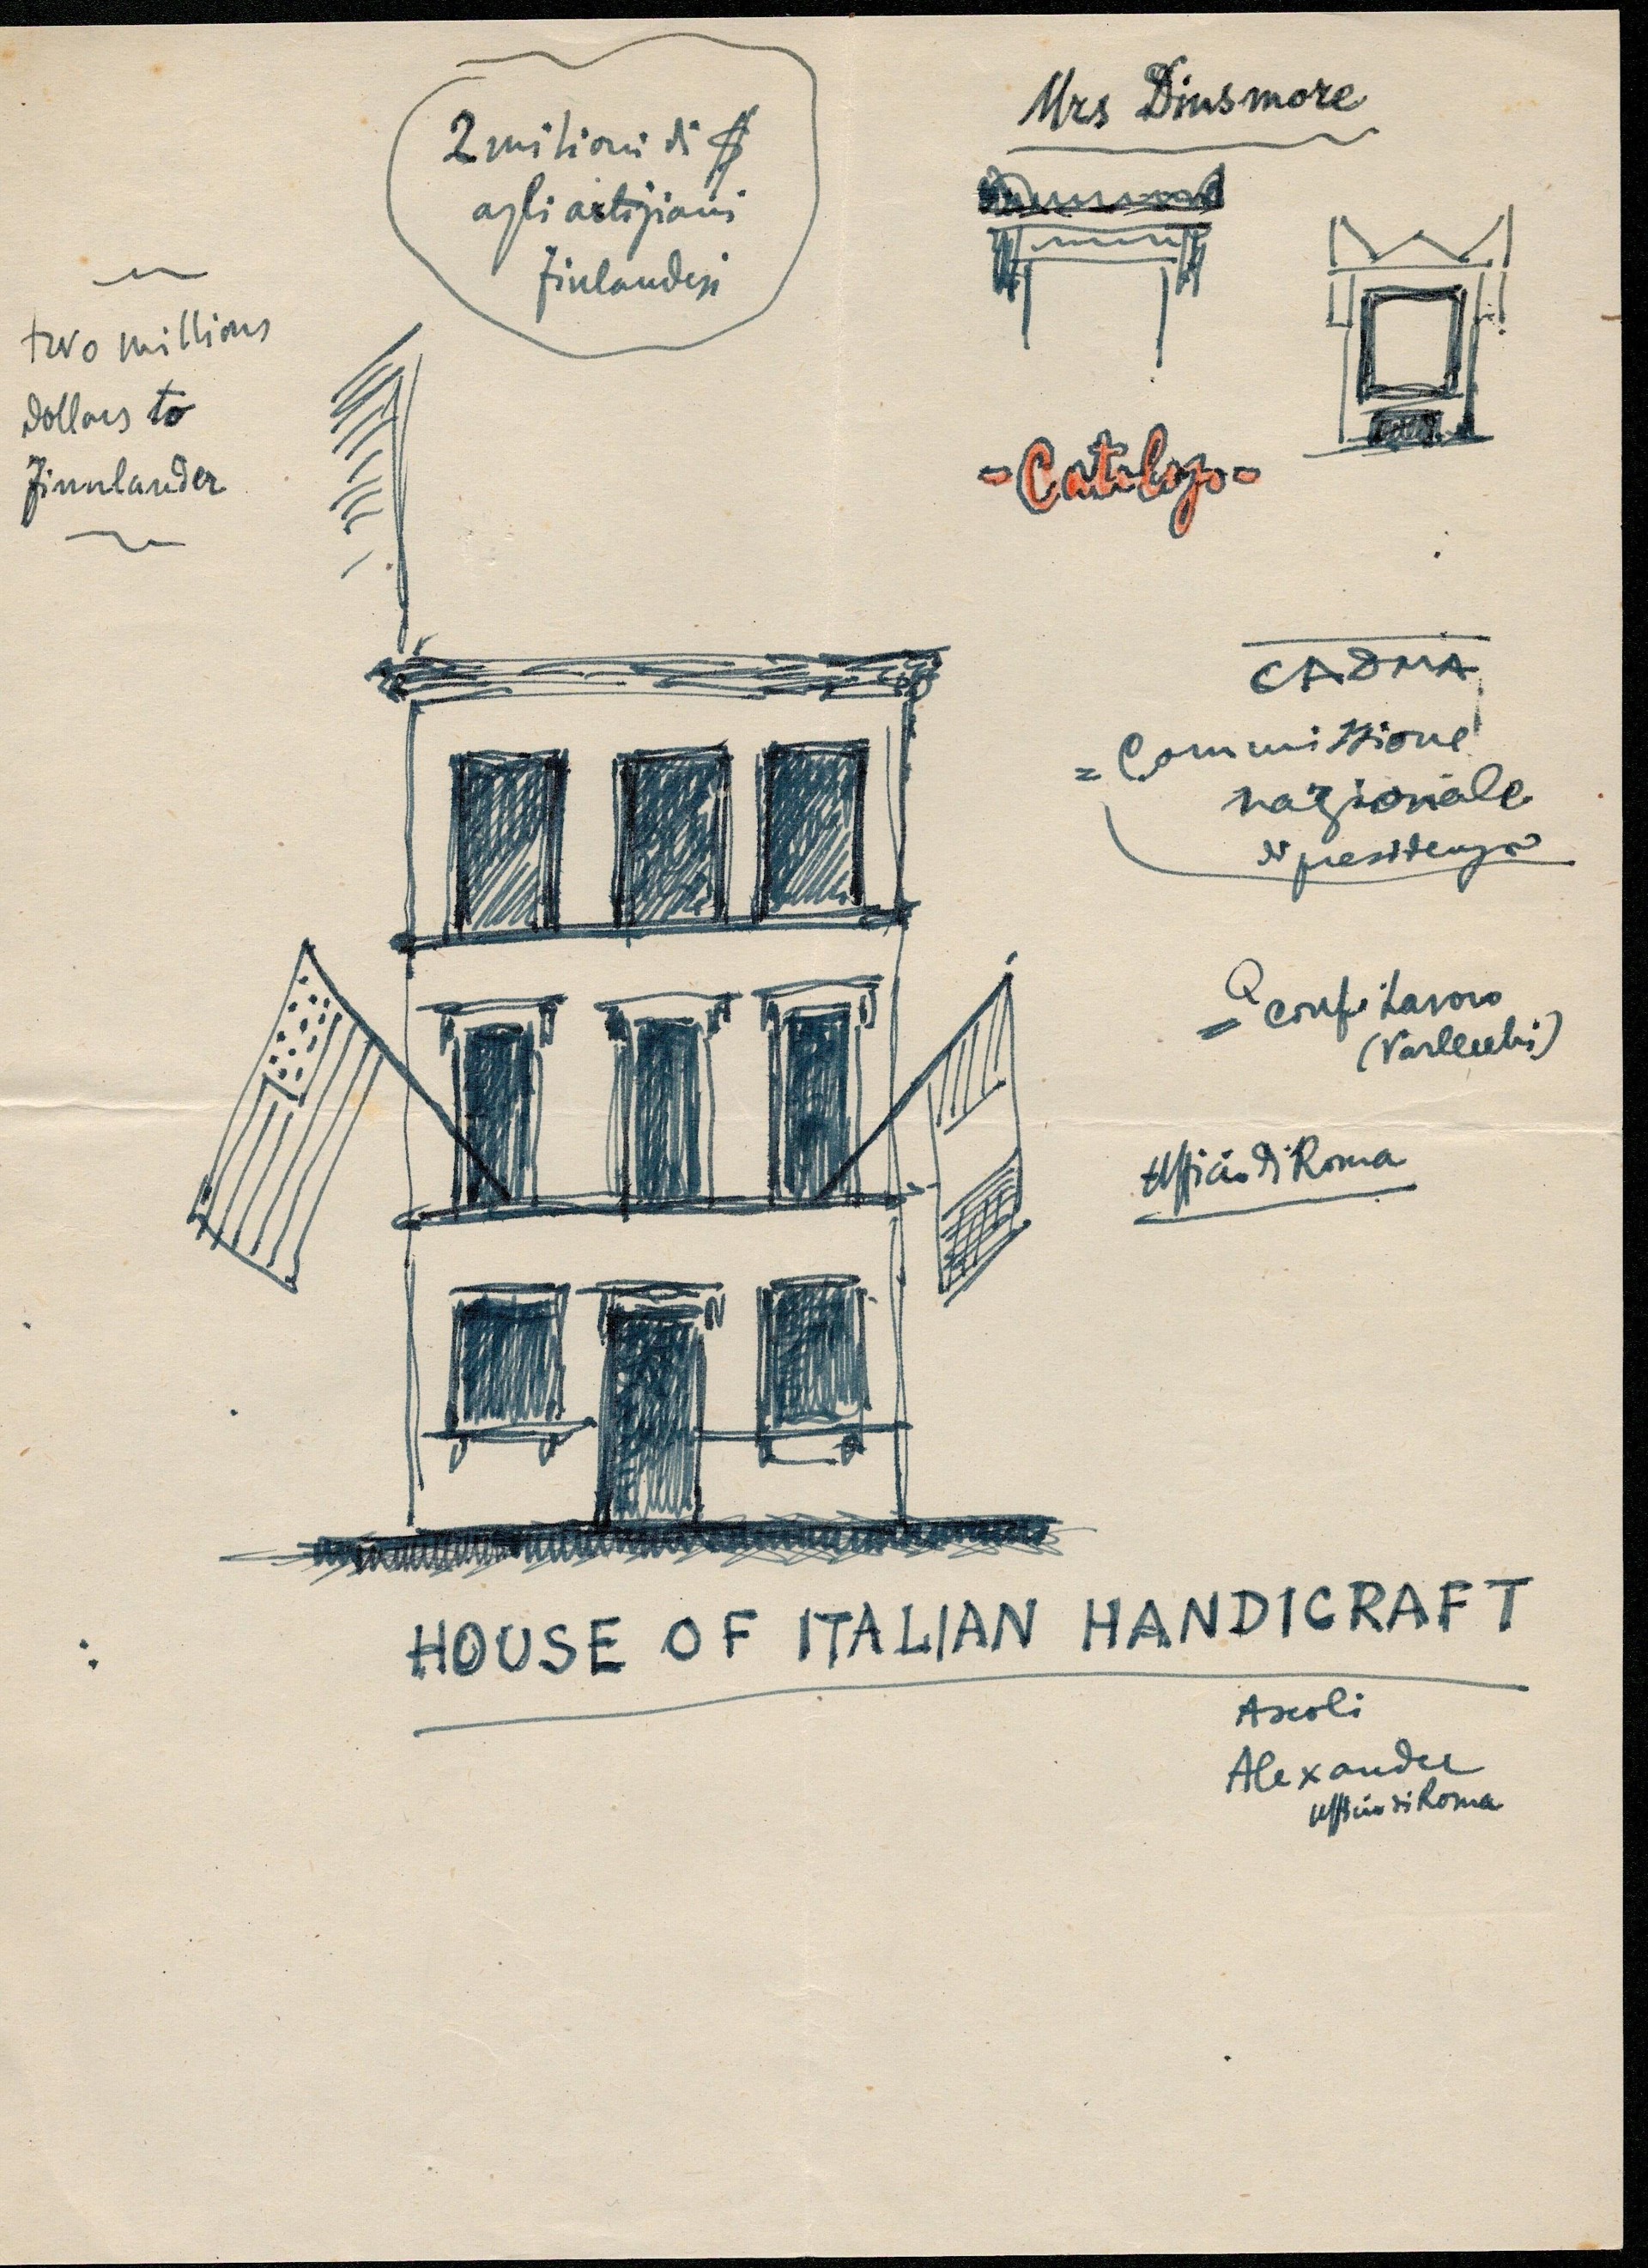 2 milioni di $
agli artigiani
finlandesi
two millions
dollars to
finnlander
Mrs Dinsmore
-Catalogo-
CADMA
= Commissione
nazionale
di presidenza
= conf. Lavoro
Ufficio di Roma
HOUSE OF ITALIAN HANDICRAFT
Ascoli
Alexander
Ufficio di Roma